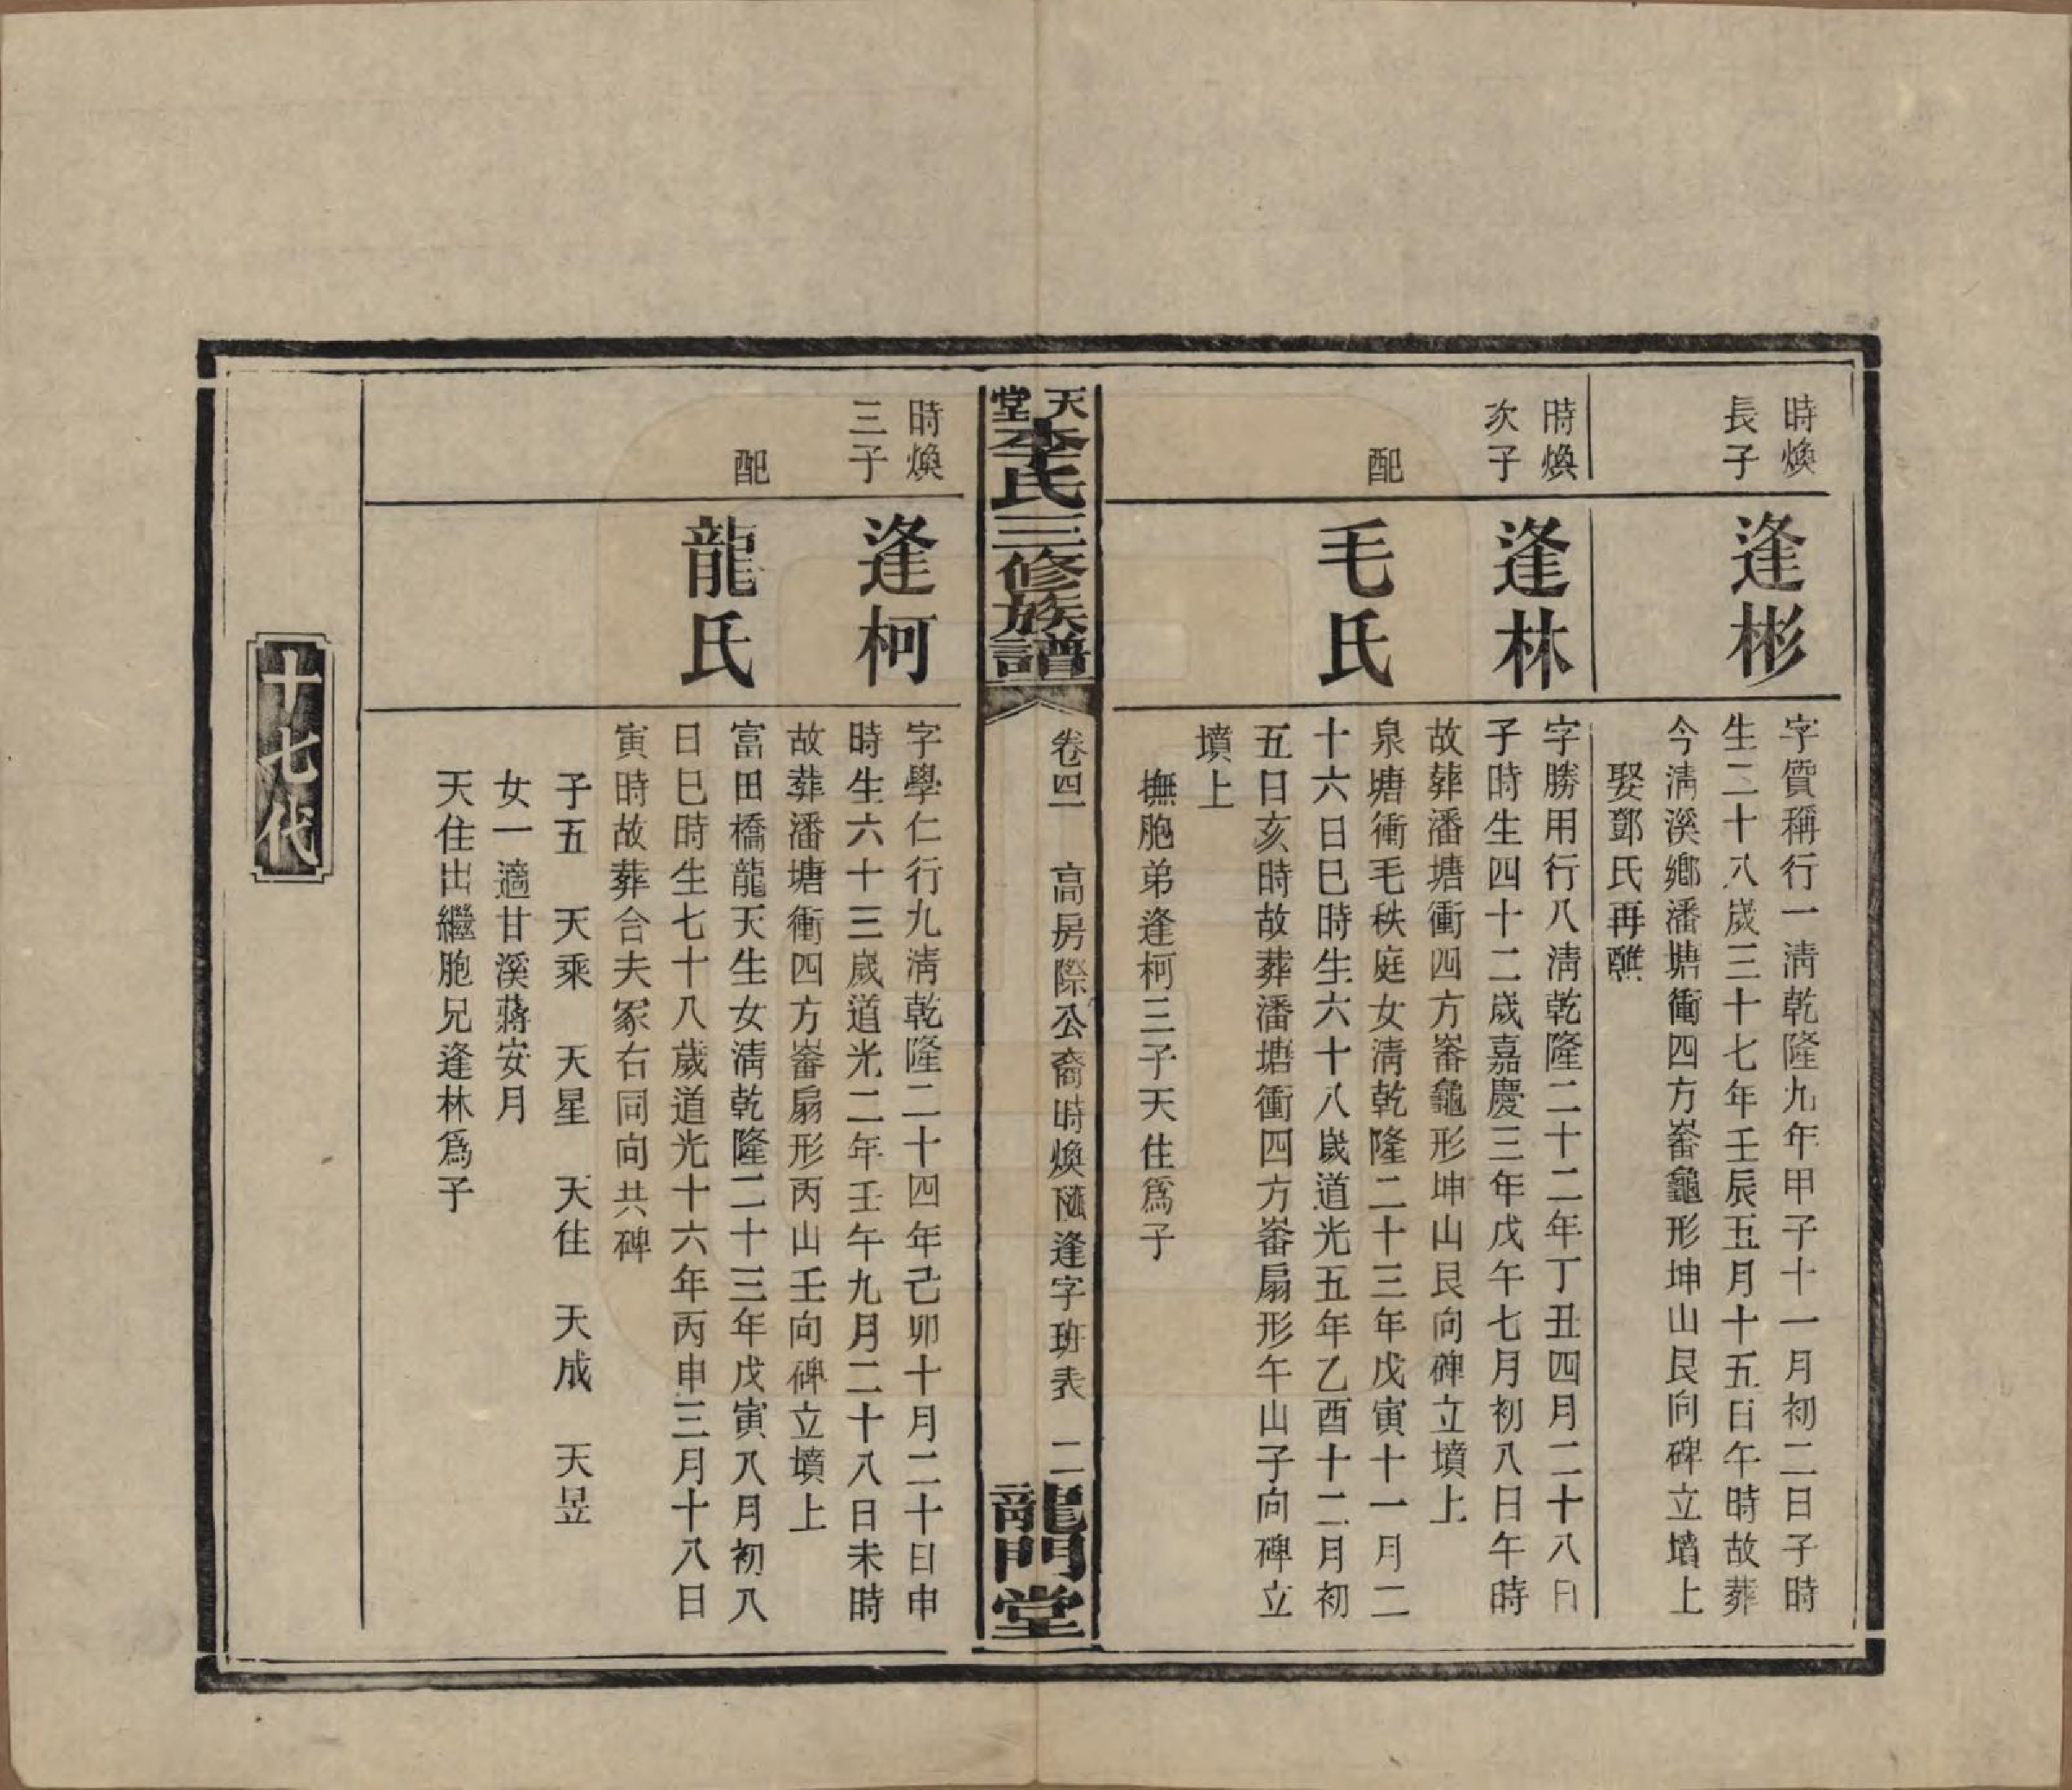 時煥
長子
逢彬
字質稱行一淸乾隆九年甲子十一月初二日子時
生二十八歲三十七年壬辰五月十五日午時故葬
今淸溪鄉潘塘衝四方嵞龜形坤山艮向碑立墳上
娶鄧氏再醮
時煥
次子
逢林
字勝用行八淸乾隆二十二年丁丑四月二十八日
子時生四十二歲嘉慶三年戊午七月初八日午時
故葬潘塘衝四方嵞龜形坤山艮向碑立墳上
配
毛氏
泉塘衝毛秩庭女淸乾隆二十三年戊寅十一月二
十六日巳時生六十八歲道光五年乙酉十二月初
五日亥時故葬潘塘衝四方嵞扇形午山子向碑立
墳上
撫胞弟逢柯三子天住爲子
天堂李氏三修族譜
卷四 高房際公裔時煥 逢字班表 二
龍門堂
時煥
三子
逢柯
字學仁行九淸乾隆二十四年己卯十月二十日申
時生六十三歲道光二年壬午九月二十八日未時
故葬潘塘衝四方嵞扇形丙山壬向碑立墳上
配
龍氏
富田橋龍天生女淸乾隆二十三年戊寅八月初八
日巳時生七十八歲道光十六年丙申三月十八日
寅時故葬合夫冢右同向共碑
子五 天乘 天星 天住 天成 天昱
女一適甘溪蔣安月
天住出繼胞兄逢林爲子
十七代